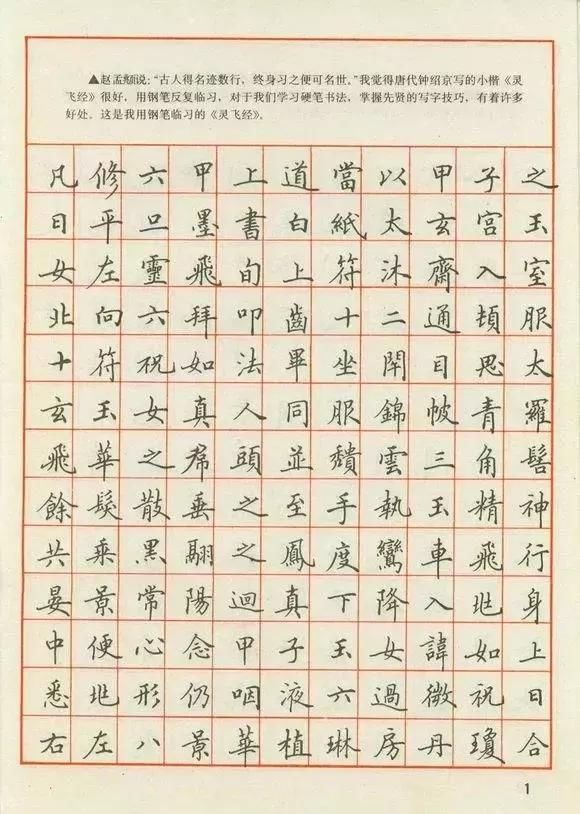 ▲赵孟頫说:“古人得名迹数行，终身习之便可名世。”我觉得唐代钟绍京写的小楷《灵
飞经》很好，用钢笔反复临习，对于我们学习硬笔书法，掌握先贤的写字技巧，有着许多
好处。这是我用钢笔临习的《灵飞经》。
凡修六甲上道當以甲子之
日平旦墨書白紙太玄宮玉
女左靈飛旬上符沐齋入室
北向六拜叩齒十二通頓服
十符祝如法畢坐閉目思太
玄玉女真人同服錦帔青羅
飛華之帬頭並穨雲三角髻
餘髮散垂之至手執玉精神
共乘黑翮之鳳度鸞車飛行
晏景常陽迴真下降入兆身
中便心念甲子玉女諱如上
悉兆形仍咽液六過微祝曰
右左八景華植琳房丹瓊合
1